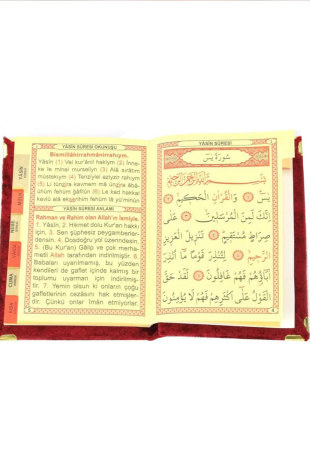 YÂSİN SÛRESİ OKUNUŞU
Bismillâhirrahmânirrahıym.
Yâsin (1) Vel kur'ânil hakiym (2) İnne-
ke le minel murseliyn (3) Alâ sırâtım
müstekıym (4) Tenziylel aziyzir rahıym
(5) Li tünzira kavmem mâ ünzira âbâ-
ühüm fehüm ğâfilûn (6) Le kad hakkal
kavlü alâ ekserihim fehüm lâ yü'minûn
YÂSİN SÛRESİ ANLAMI
Rahman ve Rahim olan Allah'ın ismiyle.
1. Yâsin, 2. Hikmet dolu Kur'an hakkı
için, 3. Sen şüphesiz peygamberler-
densin. 4. Dosdoğru yol üzerindesin.
5. (Bu Kur'an) çok güçlü, çok mer-
hametli Allah tarafından indirilmiştir. 6.
Babaları uyarılmamış, bu yüzden
kendileri de gaflet içinde kalmış bir
toplumu uyarman için indirilmiş-
tir. 7. Yemin olsun ki onların çoğu
gafletlerinin cezâsını hak etmişler-
dir. Çünkü onlar îmân etmiyorlar.
5
YÂSİN
YÂSİN SÛRESİ
سُورَةُ يٰسٓ
بِسْمِ اللّٰهِ الرَّحْمٰنِ الرَّحِيمِ
يٰسٓ ﴿١﴾ وَالْقُرْاٰنِ الْحَكِيمِ ﴿٢﴾
اِنَّكَ لَمِنَ الْمُرْسَلِينَ ﴿٣﴾ عَلٰى
صِرَاطٍ مُسْتَقِيمٍ ﴿٤﴾ تَنْزِيلَ الْعَزِيزِ
الرَّحِيمِ ﴿٥﴾ لِتُنْذِرَ قَوْمًا مَٓا اُنْذِرَ
اٰبَٓاؤُ۬هُمْ فَهُمْ غَافِلُونَ ﴿٦﴾ لَقَدْ حَقَّ
الْقَوْلُ عَلٰٓى اَكْثَرِهِمْ فَهُمْ لَا يُؤْمِنُونَ
4